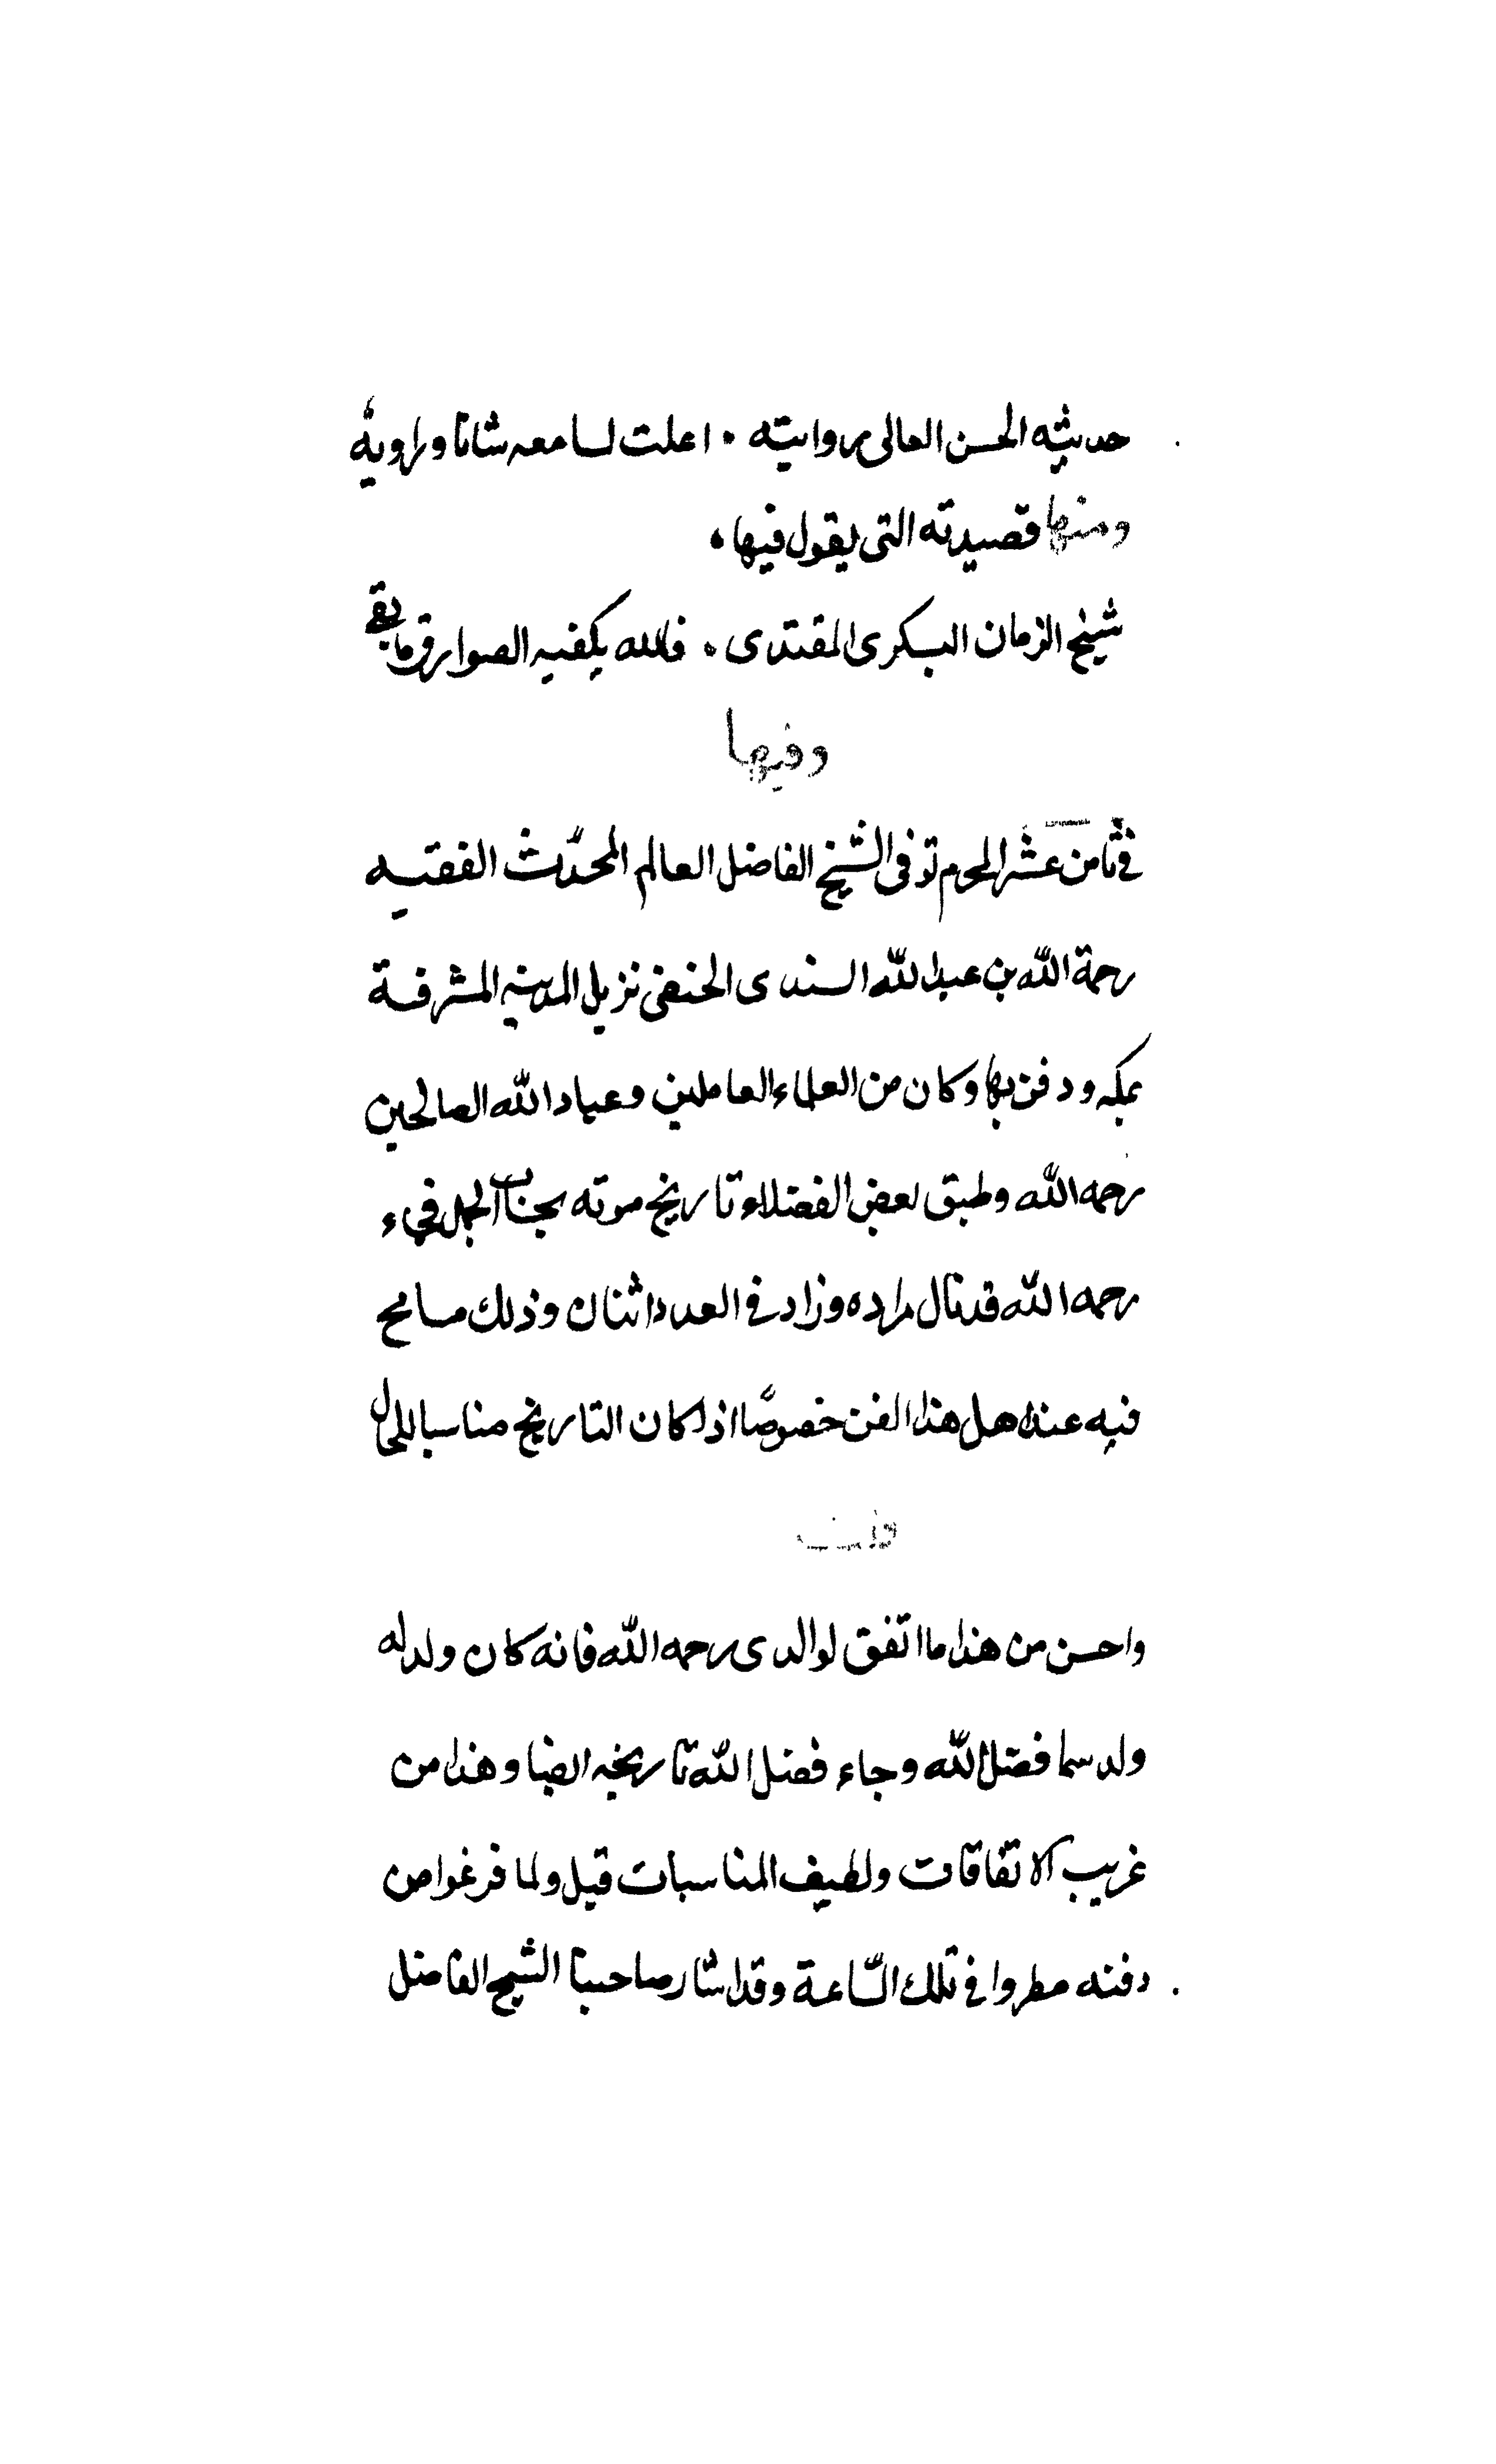 حديثه الحسن العالى روايته . اعلت لسامعه شانا وراويه
ومنها قصيدته التى يقول فيها .
شيخ الزمان البكرى المقتدى . فالله يكفيه الصوارق ما بقى
وفيها
فى ثامن عشر المحرم توفى الشيخ الفاضل العالم المحدّث الفقيه
رحمة الله بن عبد الله السندى الحنفى نزيل المدينه المشرفة
بمكه ودفن بها وكان من العلماء العاملين وعباد الله الصالحين
رحمه الله وطبق بعض الفضلاء تاريخ موته بحساب الجمل فجىء
رحمه الله قد نال مراده وزاد فى العدد اثنان وذلك مسامح
فيه عند اهل هذا الفن خصوصًا اذا كان التاريخ مناسبا للحال
قلت
واحسن من هذا ما اتفق لوالدى رحمه الله فانه كان ولد له
ولد سماه فضل الله وجاء فضل الله تاريخه ايضا وهذا من
غريب الاتفاقات ولطيف المناسبات قيل ولما فرغوا من
دفنه مطروا فى تلك السّاعة وقد اشار صاحبنا الشيخ الفاضل